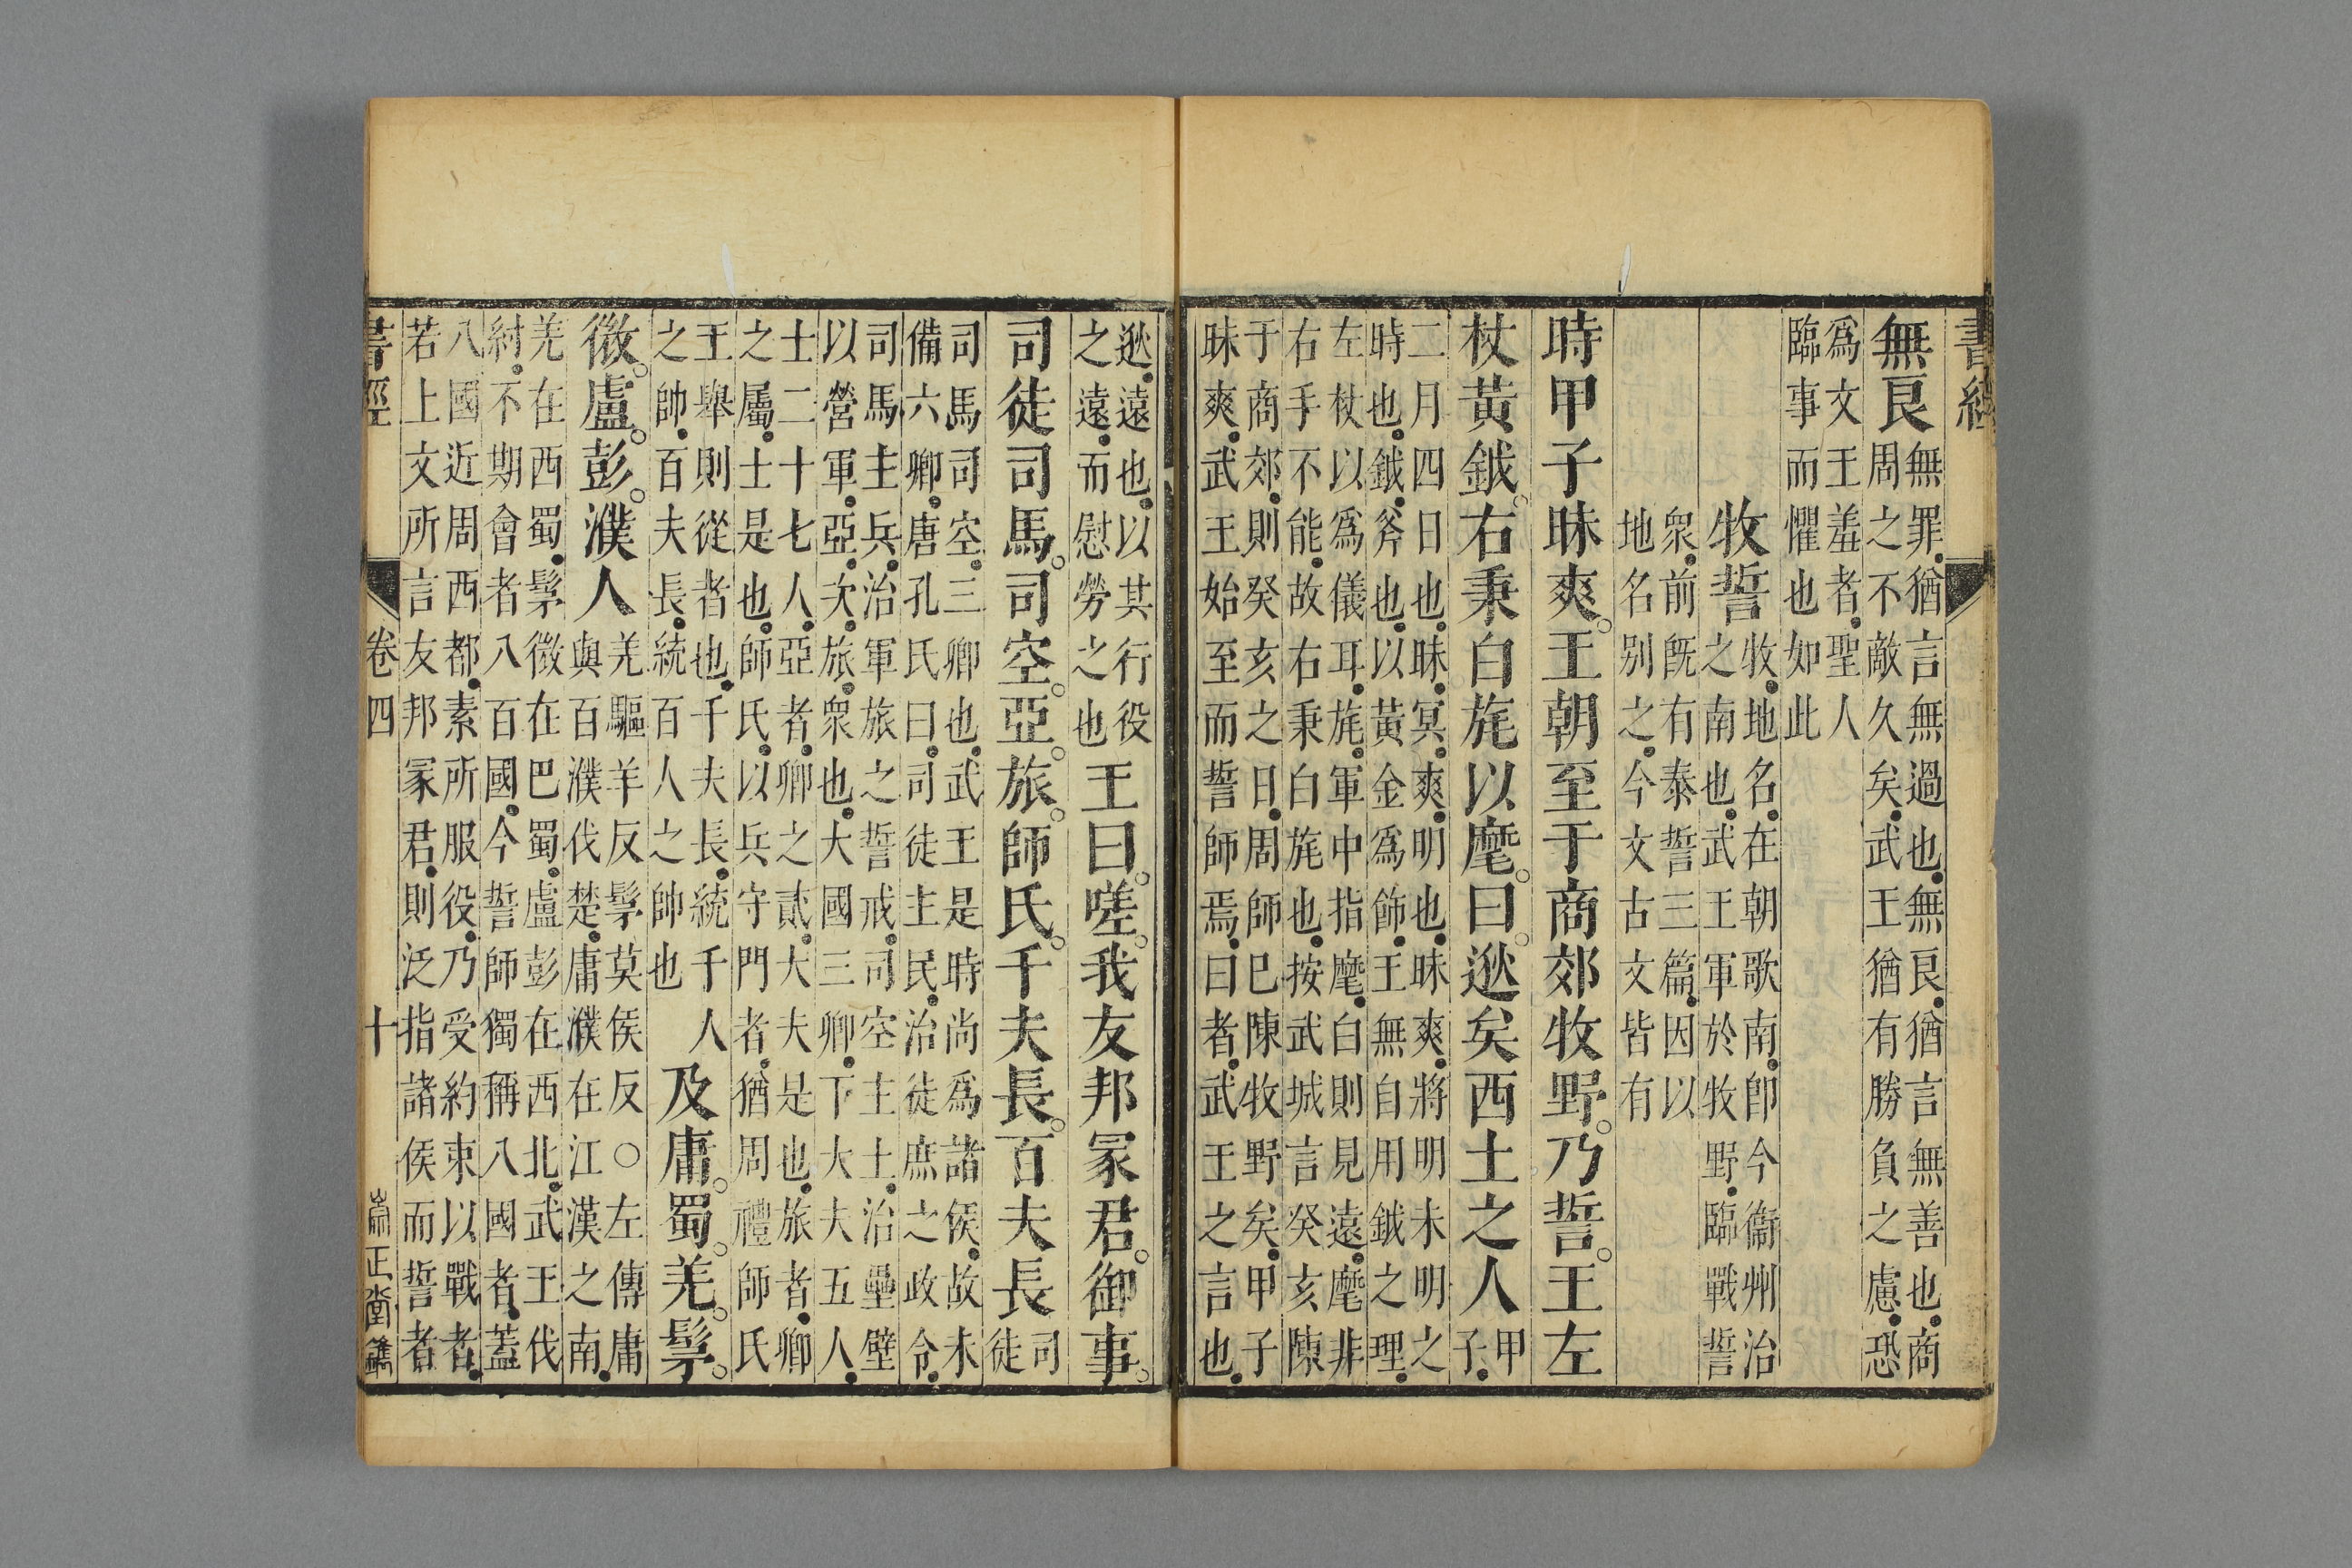 書經
無良無罪猶言無過也無良猶言無善也商
周之不敵久矣武王猶有勝負之慮恐
爲文王羞者聖人
臨事而懼也如此
牧誓牧地名在朝歌南卽今衞州治
之南也武王軍於牧野臨戰誓
衆前旣有泰誓三篇因以
地名别之今文古文皆有
時甲子昧爽王朝至于商郊牧野乃誓王左
杖黃鉞右秉白旄以麾曰逖矣西土之人甲
子
二月四日也昧冥爽明也昧爽將明未明之
時也鉞斧也以黃金爲飾王無自用鉞之理
左杖以爲儀耳旄軍中指麾白則見遠麾非
右手不能故右秉白旄也按武城言癸亥陳
于商郊則癸亥之日周師巳陳牧野矣甲子
昧爽武王始至而誓師焉曰者武王之言也
逖遠也以其行役
之遠而慰勞之也
王曰嗟我友邦冢君御事
司徒司馬司空亞旅師氏千夫長百夫長司
徒
司馬司空三卿也武王是時尚爲諸侯故未
備六卿唐孔氏曰司徒主民治徒庶之政令
司馬主兵治軍旅之誓戒司空主土治壘壁
以營軍亞次旅衆也大國三卿下大夫五人
士二十七人亞者卿之貳大夫是也旅者卿
之屬士是也師氏以兵守門者猶周禮師氏
王舉則從者也千夫長統千人
之帥百夫長統百人之帥也
及庸蜀羌髳
微盧彭濮人羌驅羊反髳莫侯反○左傳庸
與百濮伐楚庸濮在江漢之南
羌在西蜀髳微在巴蜀盧彭在西北武王伐
紂不期會者八百國今誓師獨稱八國者蓋
八國近周西都素所服役乃受約束以戰者
若上文所言友邦冢君則泛指諸侯而誓者
書經
卷四
十
崇正堂鐫